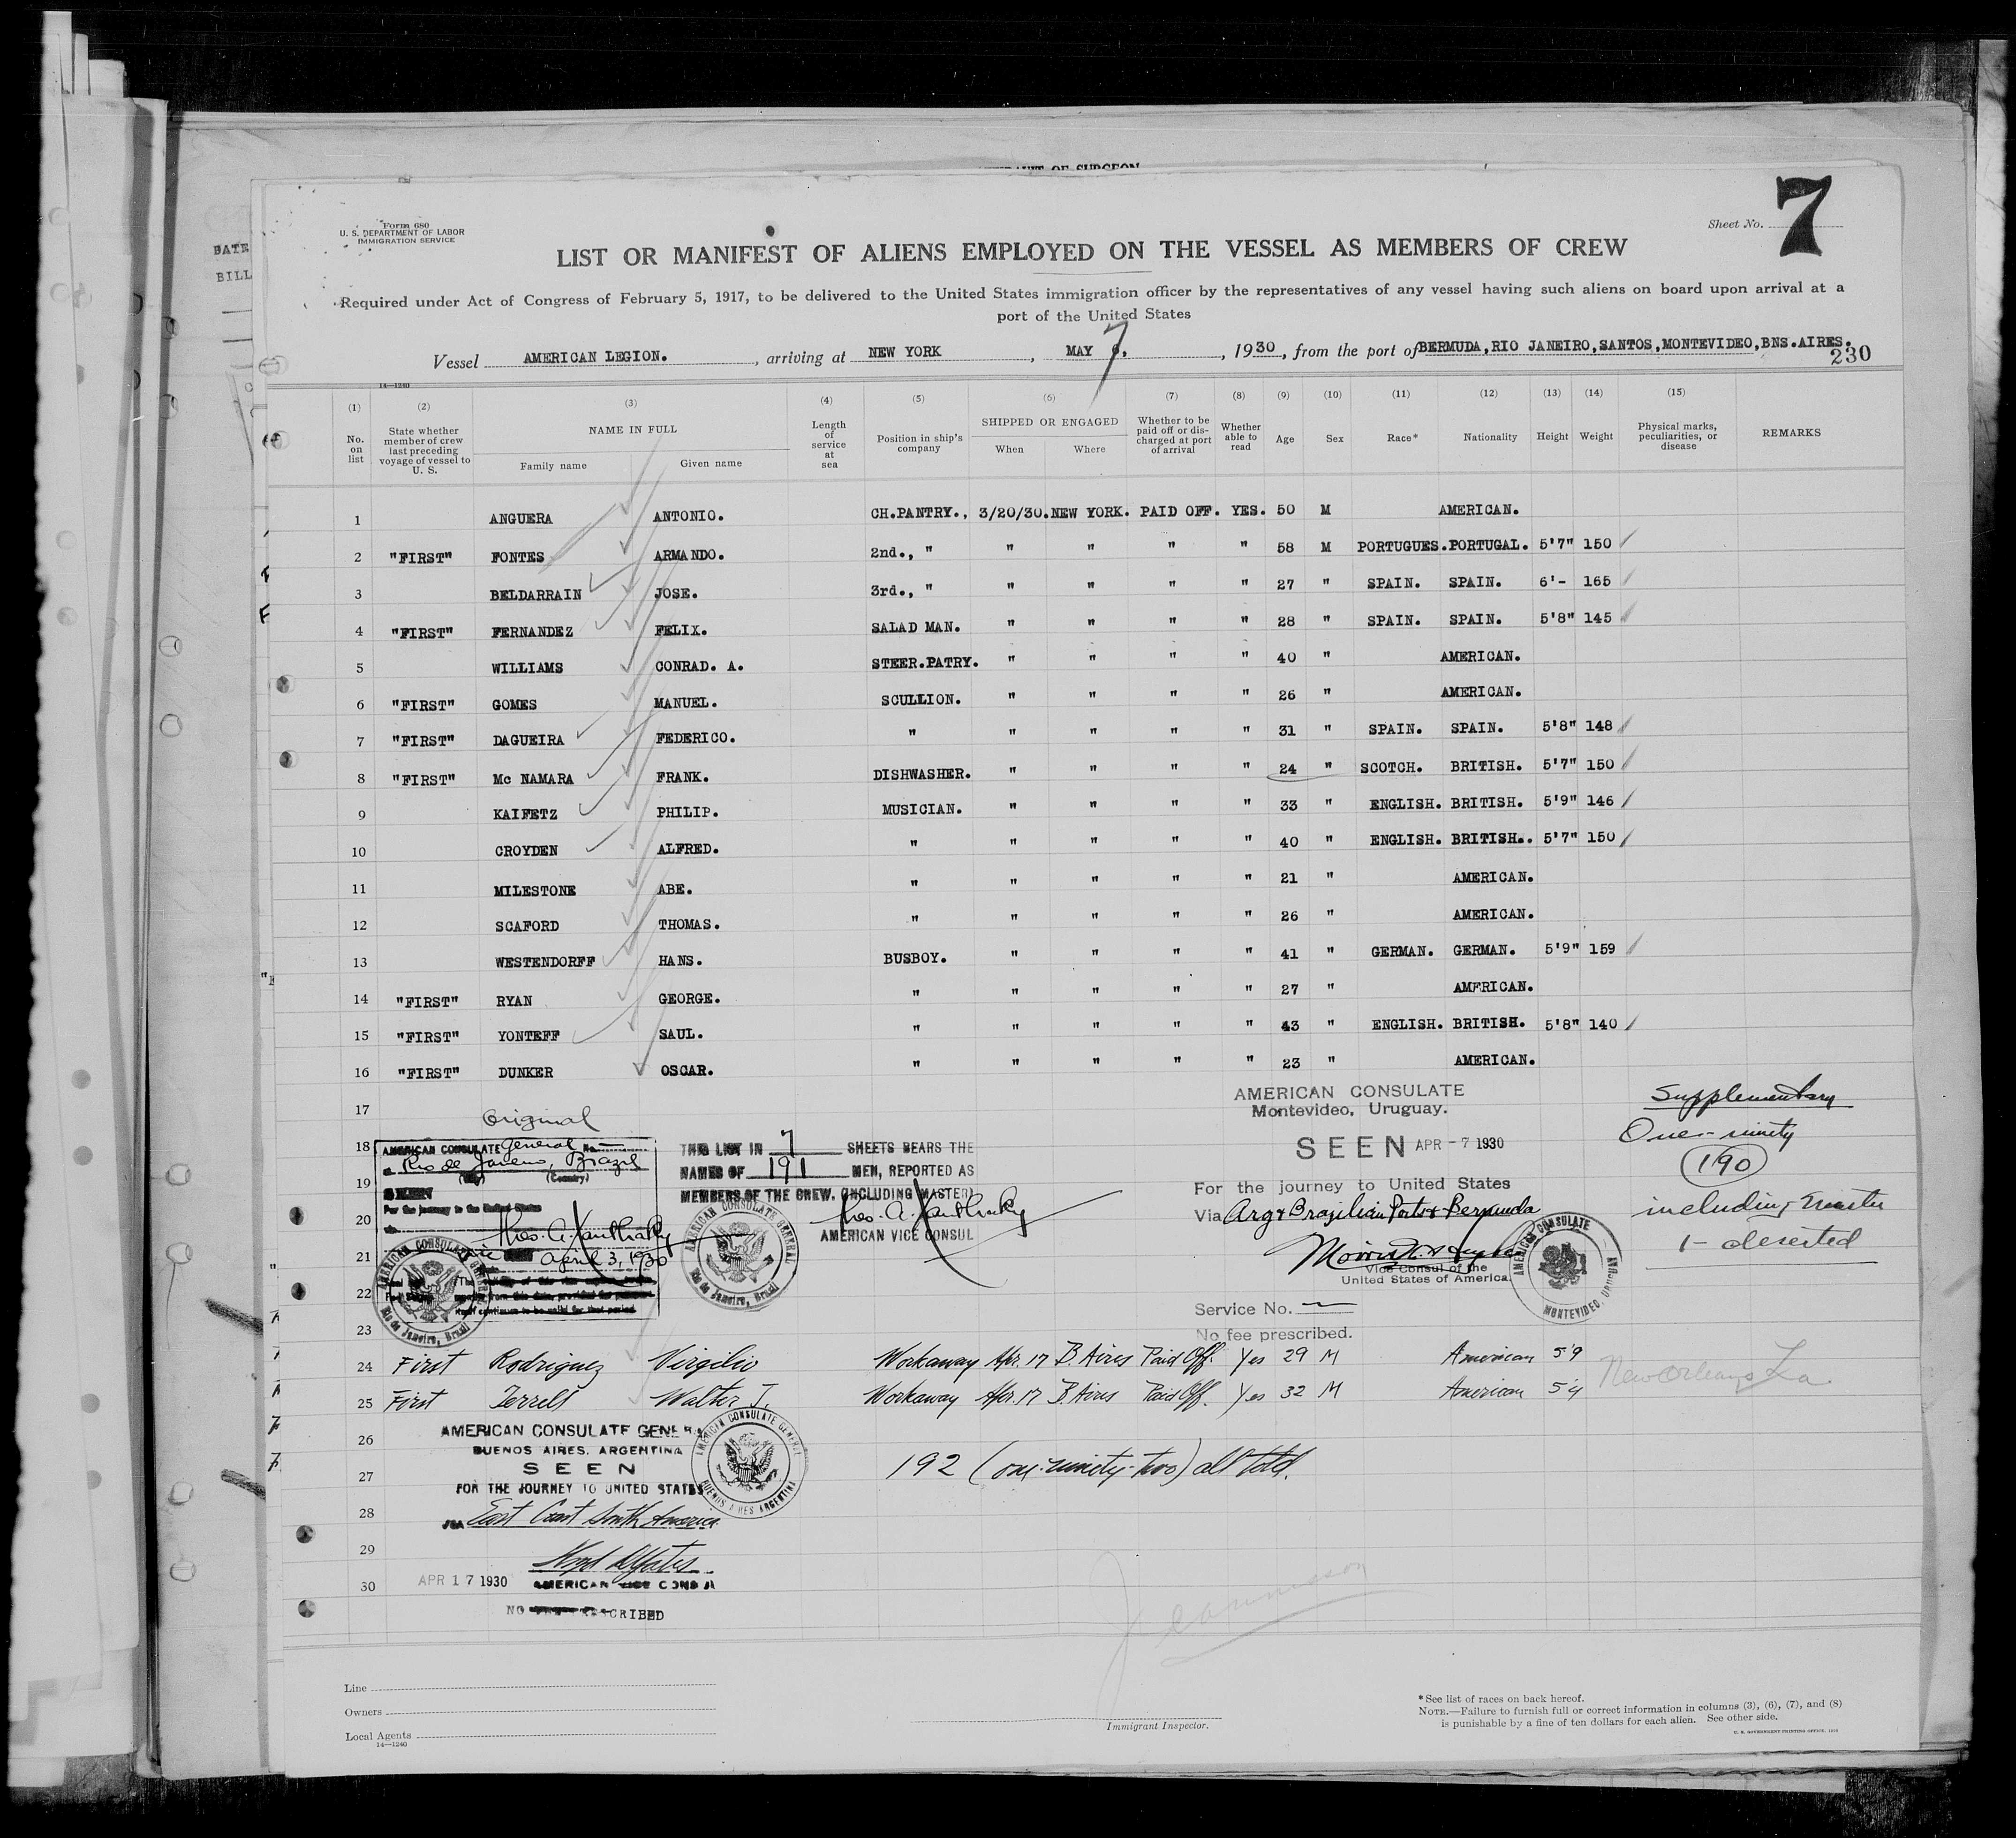 Form 680
U. S. DEPARTMENT OF LABOR
IMMIGRATION SERVICE
Sheet No. 7
LIST OR MANIFEST OF ALIENS EMPLOYED ON THE VESSEL AS MEMBERS OF CREW
Required under Act of Congress of February 5, 1917, to be delivered to the United States immigration officer by the representatives of any vessel having such aliens on board upon arrival at a
port of the United States
Vessel AMERICAN LEGION. , arriving at NEW YORK , MAY 7, 1930, from the port of BERMUDA,RIO JANEIRO,SANTOS,MONTEVIDEO,BNS.AIRES.
230
14—1240
(1) (2) (3) (4) (5) (6) (7) (8) (9) (10) (11) (12) (13) (14) (15)
No. on list
State whether member of crew last preceding voyage of vessel to U. S.
NAME IN FULL
Family name
Given name
Length of service at sea
Position in ship's company
SHIPPED OR ENGAGED
When
Where
Whether to be paid off or discharged at port of arrival
Whether able to read
Age
Sex
Race*
Nationality
Height
Weight
Physical marks, peculiarities, or disease
REMARKS
1 ANGUERA ANTONIO. CH.PANTRY., 3/20/30. NEW YORK. PAID OFF. YES. 50 M AMERICAN.
2 "FIRST" FONTES ARMANDO. 2nd., " " " " " 58 M PORTUGUES. PORTUGAL. 5'7" 150
3 BELDARRAIN JOSE. 3rd., " " " " " 27 " SPAIN. SPAIN. 6'- 165
4 "FIRST" FERNANDEZ FELIX. SALAD MAN. " " " " 28 " SPAIN. SPAIN. 5'8" 145
5 WILLIAMS CONRAD. A. STEER.PATRY. " " " " 40 " AMERICAN.
6 "FIRST" GOMES MANUEL. SCULLION. " " " " 26 " AMERICAN.
7 "FIRST" DAGUEIRA FEDERICO. " " " " " 31 " SPAIN. SPAIN. 5'8" 148
8 "FIRST" Mc NAMARA FRANK. DISHWASHER. " " " " 24 " SCOTCH. BRITISH. 5'7" 150
9 KAIFETZ PHILIP. MUSICIAN. " " " " 33 " ENGLISH. BRITISH. 5'9" 146
10 CROYDEN ALFRED. " " " " " 40 " ENGLISH. BRITISH.. 5'7" 150
11 MILESTONE ABE. " " " " " 21 " AMERICAN.
12 SCAFORD THOMAS. " " " " " 26 " AMERICAN.
13 WESTENDORFF HANS. BUSBOY. " " " " 41 " GERMAN. GERMAN. 5'9" 159
14 "FIRST" RYAN GEORGE. " " " " " 27 " AMERICAN.
15 "FIRST" YONTEFF SAUL. " " " " " 43 " ENGLISH. BRITISH. 5'8" 140
16 "FIRST" DUNKER OSCAR. " " " " " 23 " AMERICAN.
17
Original
18
AMERICAN CONSULATE General No.
Rio de Janeiro, Brazil
(City) (Country)
SEEN
For the journey to the United States
April 3, 1930
THIS LIST IN 7 SHEETS BEARS THE
NAMES OF 191 MEN, REPORTED AS
MEMBERS OF THE CREW. (INCLUDING MASTER)
AMERICAN VICE CONSUL
AMERICAN CONSULATE GENERAL
Rio de Janeiro, Brazil
AMERICAN CONSULATE
Montevideo, Uruguay.
SEEN APR -7 1930
For the journey to United States
Via Arg & Brazilian Ports & Bermuda
Vice Consul of the
United States of America.
Service No.
No fee prescribed.
AMERICAN CONSULATE
MONTEVIDEO, URUGUAY
Supplementary
One-ninety
(190)
including master
1- deserted
19
20
21
22
23
24 First Rodriguez Virgilio Workaway Apr. 17 B. Aires Paid Off. Yes 29 M American 5'9
25 First Terrell Walter J. Workaway Apr. 17 B. Aires Paid Off. Yes 32 M American 5'4
New Orleans La.
26
27
28
29
30
AMERICAN CONSULATE GENERAL
BUENOS AIRES, ARGENTINA
SEEN
FOR THE JOURNEY TO UNITED STATES
VIA East Coast South America
APR 17 1930
AMERICAN VICE CONSUL
AMERICAN CONSULATE GENERAL
BUENOS AIRES ARGENTINA
192 (one-ninety-two) all told.
Line
Owners
Local Agents
14—1240
Immigrant Inspector.
*See list of races on back hereof.
NOTE.—Failure to furnish full or correct information in columns (3), (6), (7), and (8)
is punishable by a fine of ten dollars for each alien. See other side.
U. S. GOVERNMENT PRINTING OFFICE